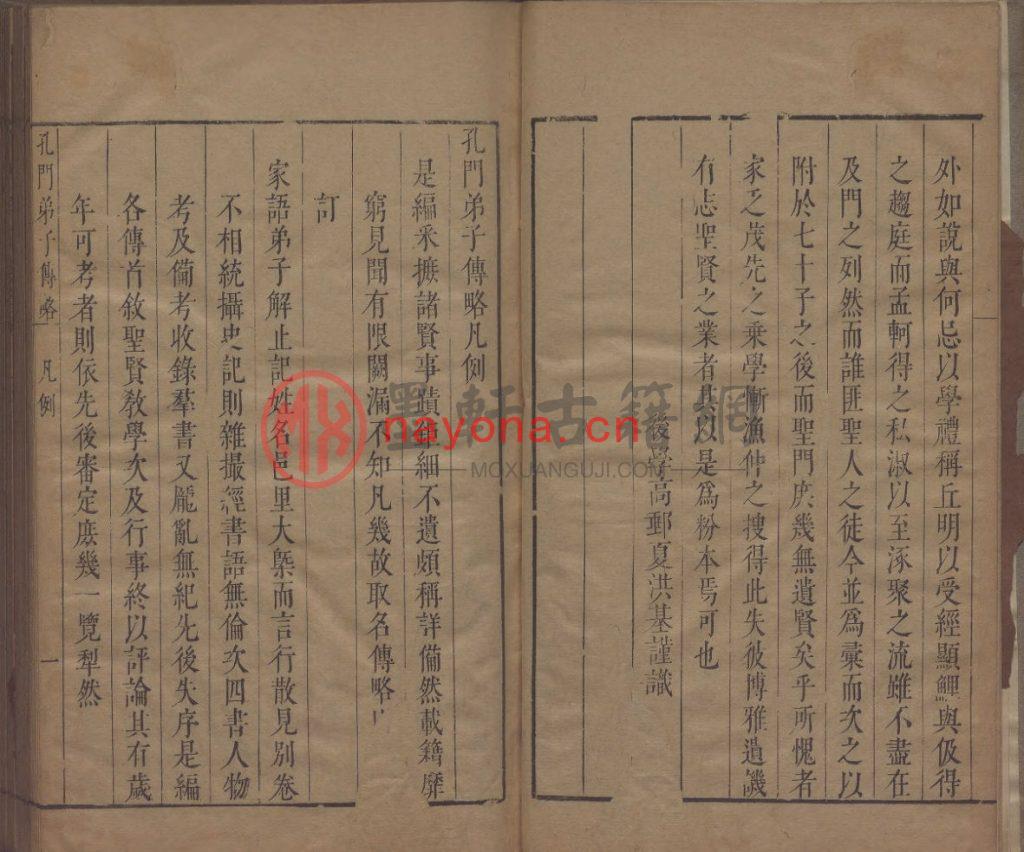 外如說與何忌以學禮稱丘明以受經顯鯉與伋得
之趨庭而孟軻得之私淑以至涿聚之流雖不盡在
及門之列然而誰匪聖人之徒今並爲彚而次之以
附於七十子之後而聖門庶幾無遺賢矣乎所愧者
家乏茂先之乗學慚漁仲之搜得此失彼博雅遺譏
有志聖賢之業者其以是爲粉本焉可也
後學高郵夏洪基謹識
孔門弟子傳略凡例
是編釆摭諸賢事蹟細不遺頗稱詳備然載籍靡
窮見聞有限闕漏不知凡幾故取名傳略
訂
家語弟子解止記姓名邑里大槩而言行散見別卷
不相統攝史記則雜撮經書語無倫次四書人物
考及備考收錄羣書又龐亂無紀先後失序是編
各傳首敘聖賢敎學次及行事終以評論其有歲
年可考者則依先後審定庶幾一覽犁然
孔門弟子傳略 凡例 一
墨軒古籍網
nayona.cn
MOXUANGUJI.COM